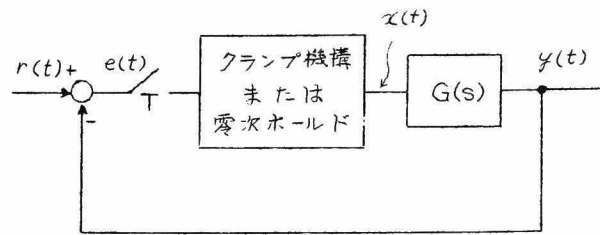 x(t)
r(t)
+
e(t)
クランプ機構
または
零次ホールド
G(s)
y(t)
T
-